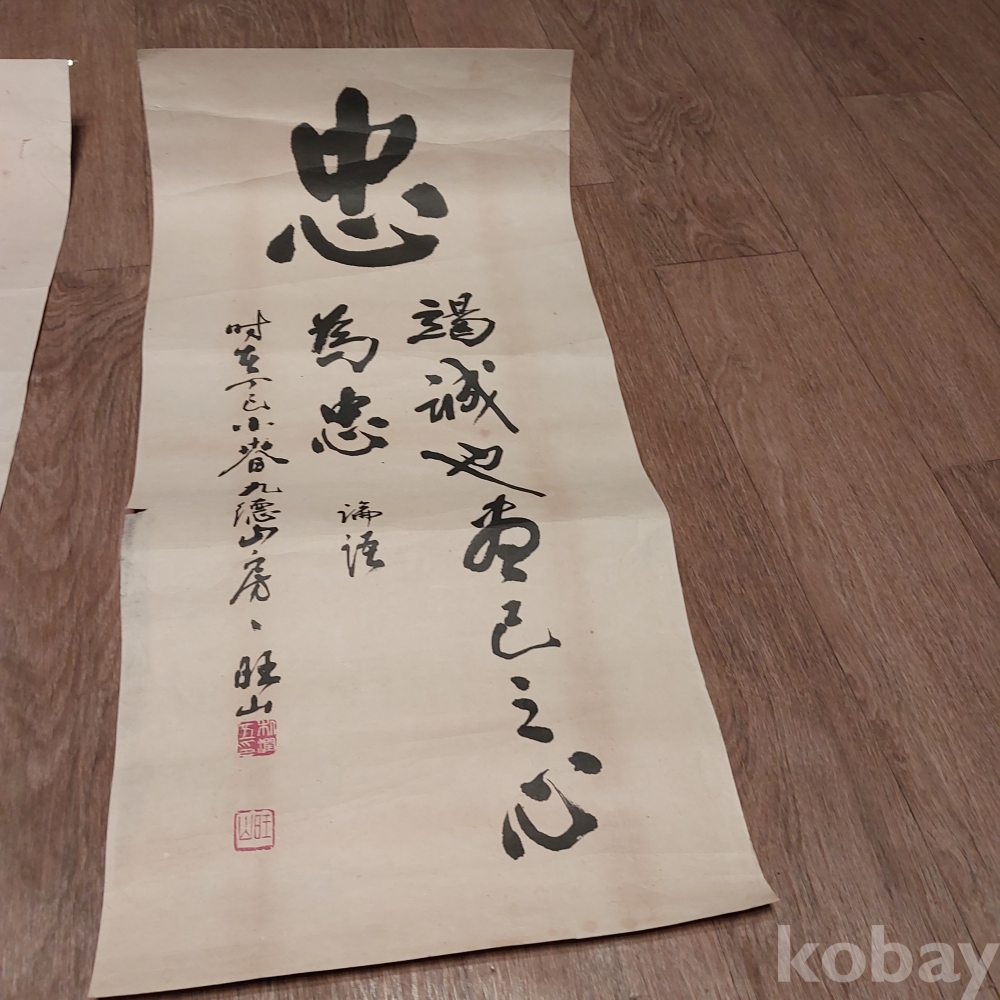 忠
竭誠也盡己之心
為忠
論語
时在丁巳小春九德山房、旺山
旺山
kobay